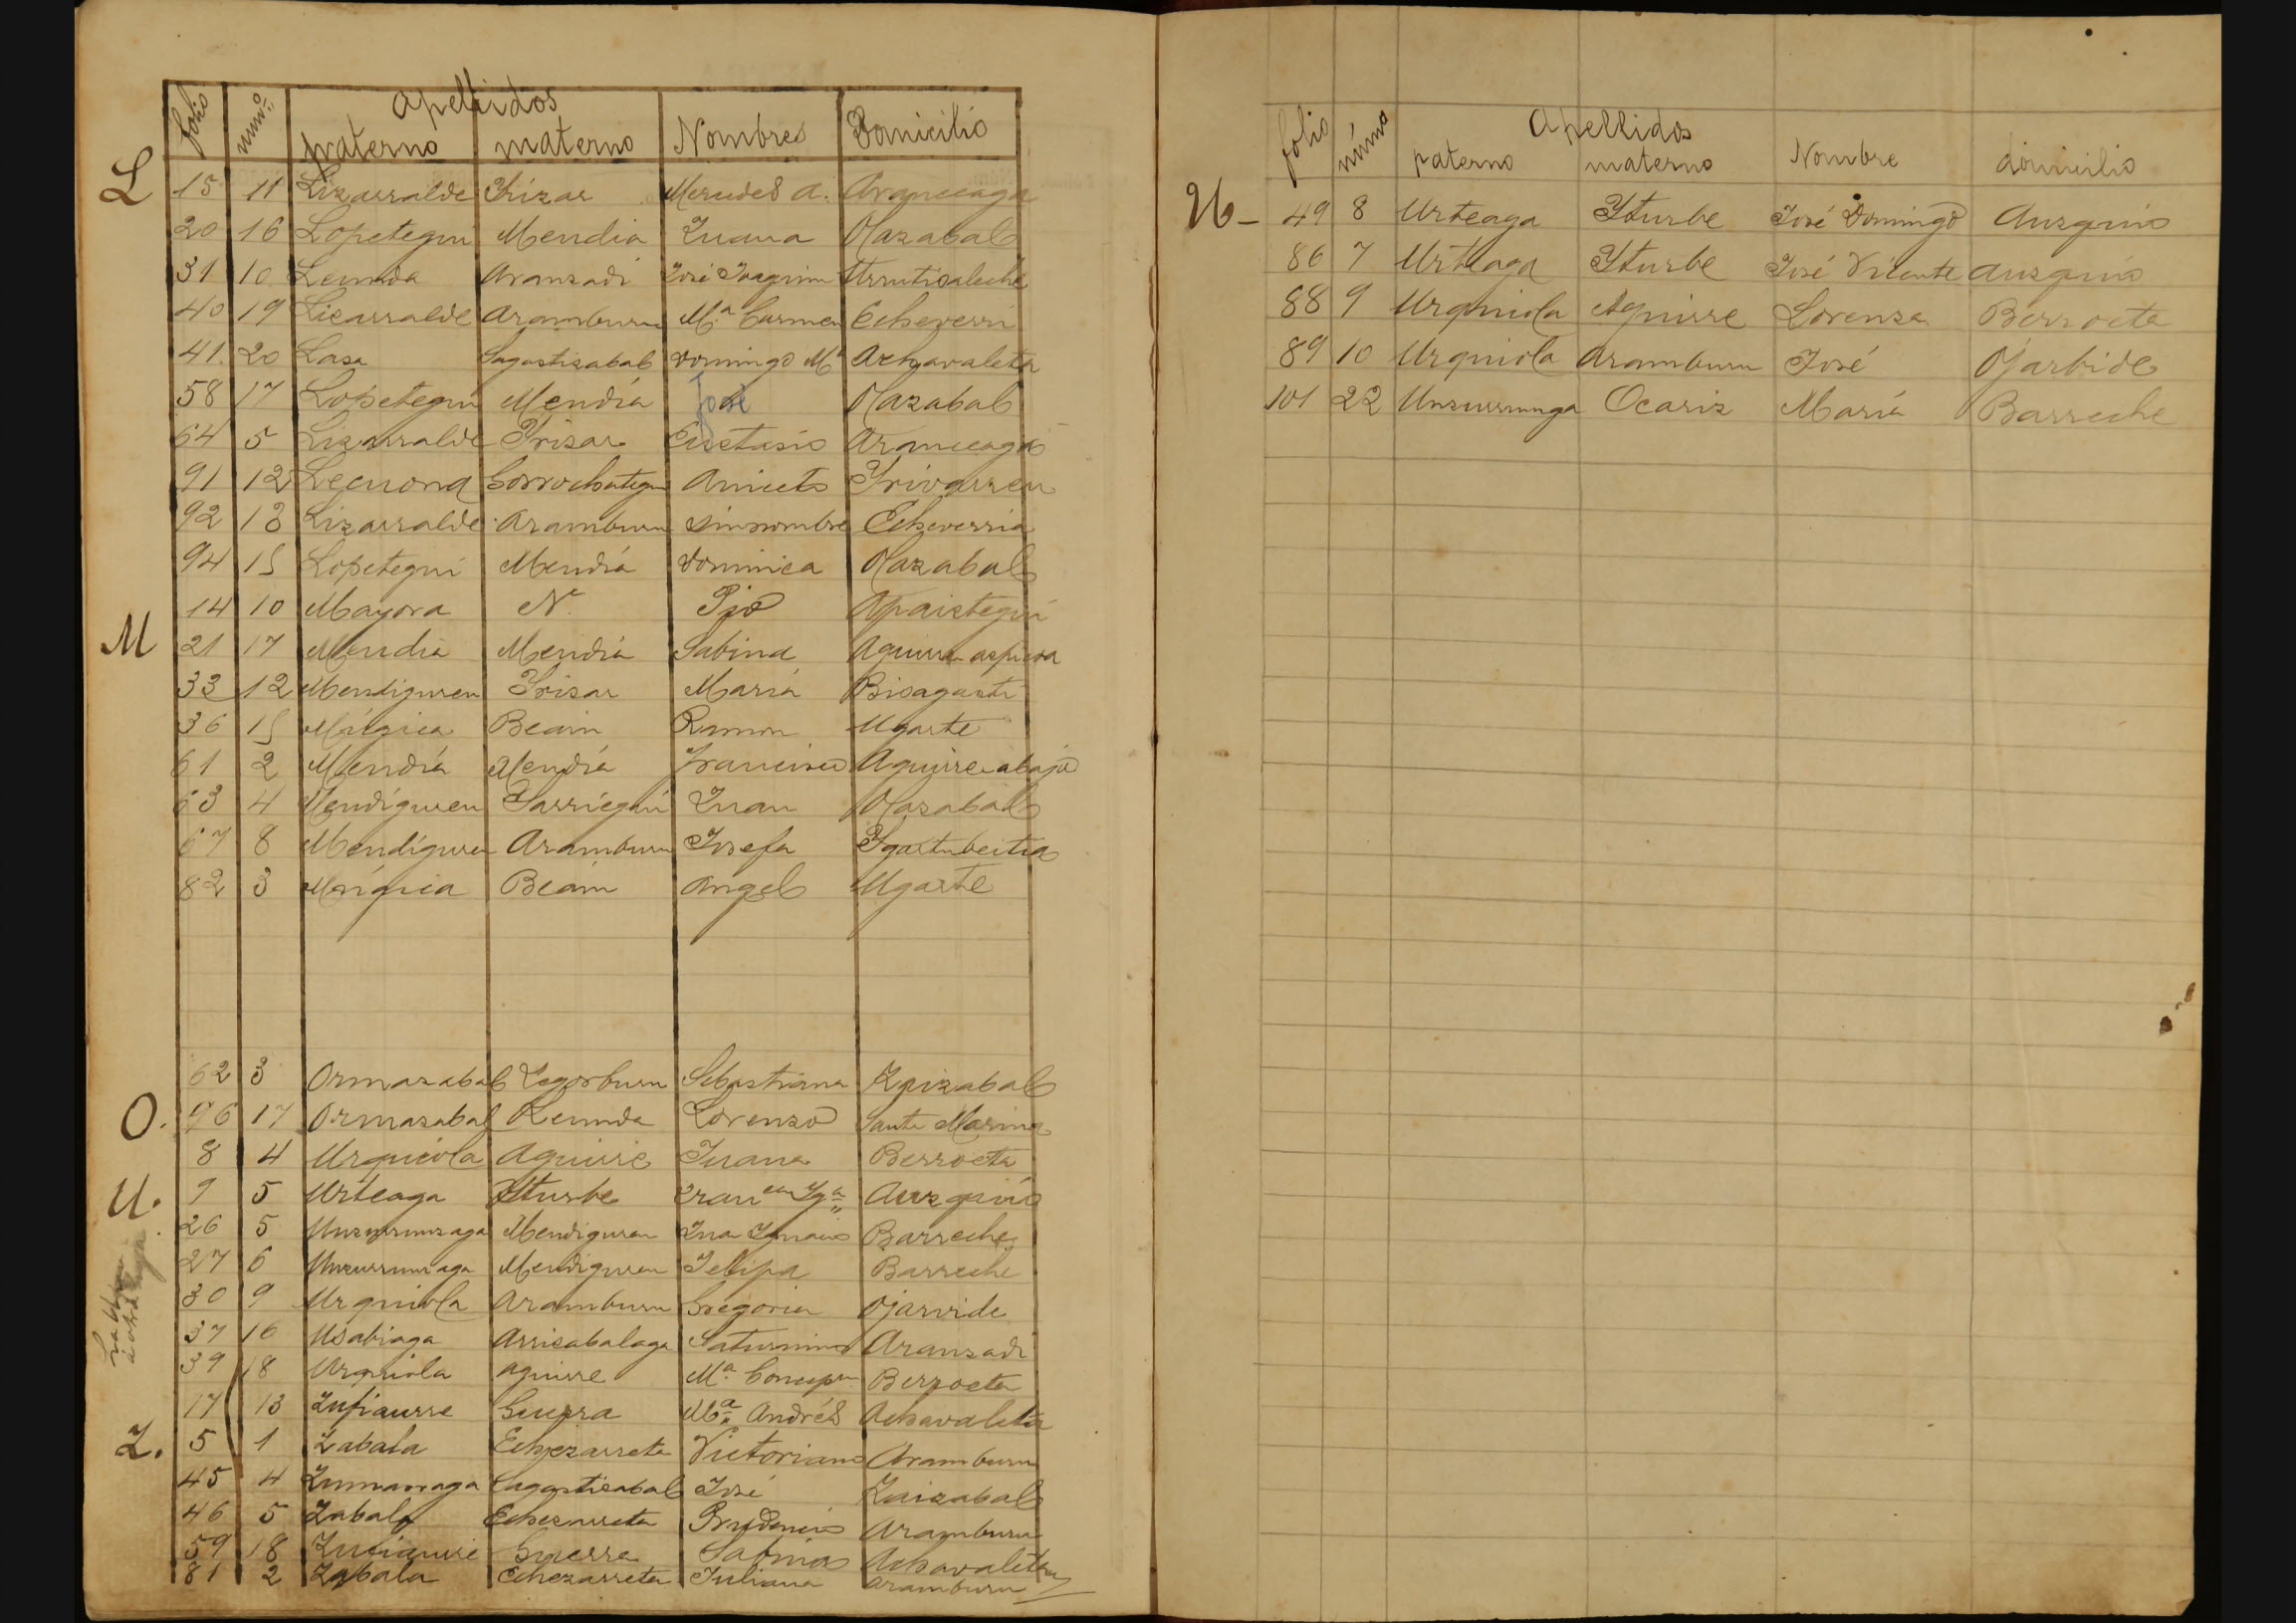 folio num.º Apellidos paterno materno Nombres Domicilio
L 15 11 Lizarralde Yrizar Mercedes A. Aranceaga
20 16 Lopetegui Mendia Juana Olazabal
31 10 Lecunda Aranzadi José Joaquin Urruticaleche
40 19 Licarralde Aramburu M.ª Carmen Echeverri
41 20 Lasa Sagastizabal Domingo M.ª Achavaleta
58 17 Lopetegui Mendía José Olazabal
64 5 Lizarralde Yrizar Eustasio Aranceaga
91 12 Lecuona Gorrochategui Aniceto Yrivarren
92 13 Lizarralde Aramburu sin nombre Echeverria
94 15 Lopetegui Mendía Dominica Olazabal
14 10 Mayora N. Pio Apaiztegui
M 21 17 Mendia Mendía Sabina Aguirre
33 12 Mendiguren Yrizar María Bisagasti
36 15 Múgica Beain Ramon Ugarte
61 2 Mendía Mendía Francisco Aguirre abajo
63 4 Mendiguren Sarriegui Juan Olazabal
67 8 Mendiguren Aramburu Josefa Ygartubeitia
82 3 Múgica Beain Angel Ugarte
62 3 Ormazabal Legorburu Sebastiana Zaizabal
O. 96 17 Ormazabal Lecunda Lorenzo Santa Marina
8 4 Urquiola Aguirre Juana Berroeta
U. 9 5 Urteaga Yturbe Auzquio
26 5 Unzurrunzaga Mendiguren Juan Ygnacio Barreche
27 6 Unzurrunzaga Mendiguren Felipa Barreche
30 9 Urquiola Aramburu Gregoria Ojarvide
37 16 Usabiaga Arrizabalaga Saturnino Aranzadi
39 18 Urquiola Aguirre M.ª Concepn Berroeta
17 13 Zufiaurre Guerra M.ª Andrés Achavaleta
Z. 5 1 Zabala Echezarreta Victoriano Aramburu
45 4 Zumarraga Sagastizabal José Zaizabal
46 5 Zabala Echezarreta Prudencio Aramburu
59 18 Zufiaurre Guerra Sabina Achavaleta
81 2 Zabala Echezarreta Juliana Aramburu
á otra hoja
folio núm.º Apellidos paterno materno Nombre domicilio
U- 49 8 Urteaga Yturbe José Domingo Auzquio
86 7 Urteaga Yturbe José Vicente Auzquio
88 9 Urquiola Aguirre Lorenza Berroeta
89 10 Urquiola Aramburu José Ojarbide
101 22 Unzurrunzaga Ocariz María Barreche